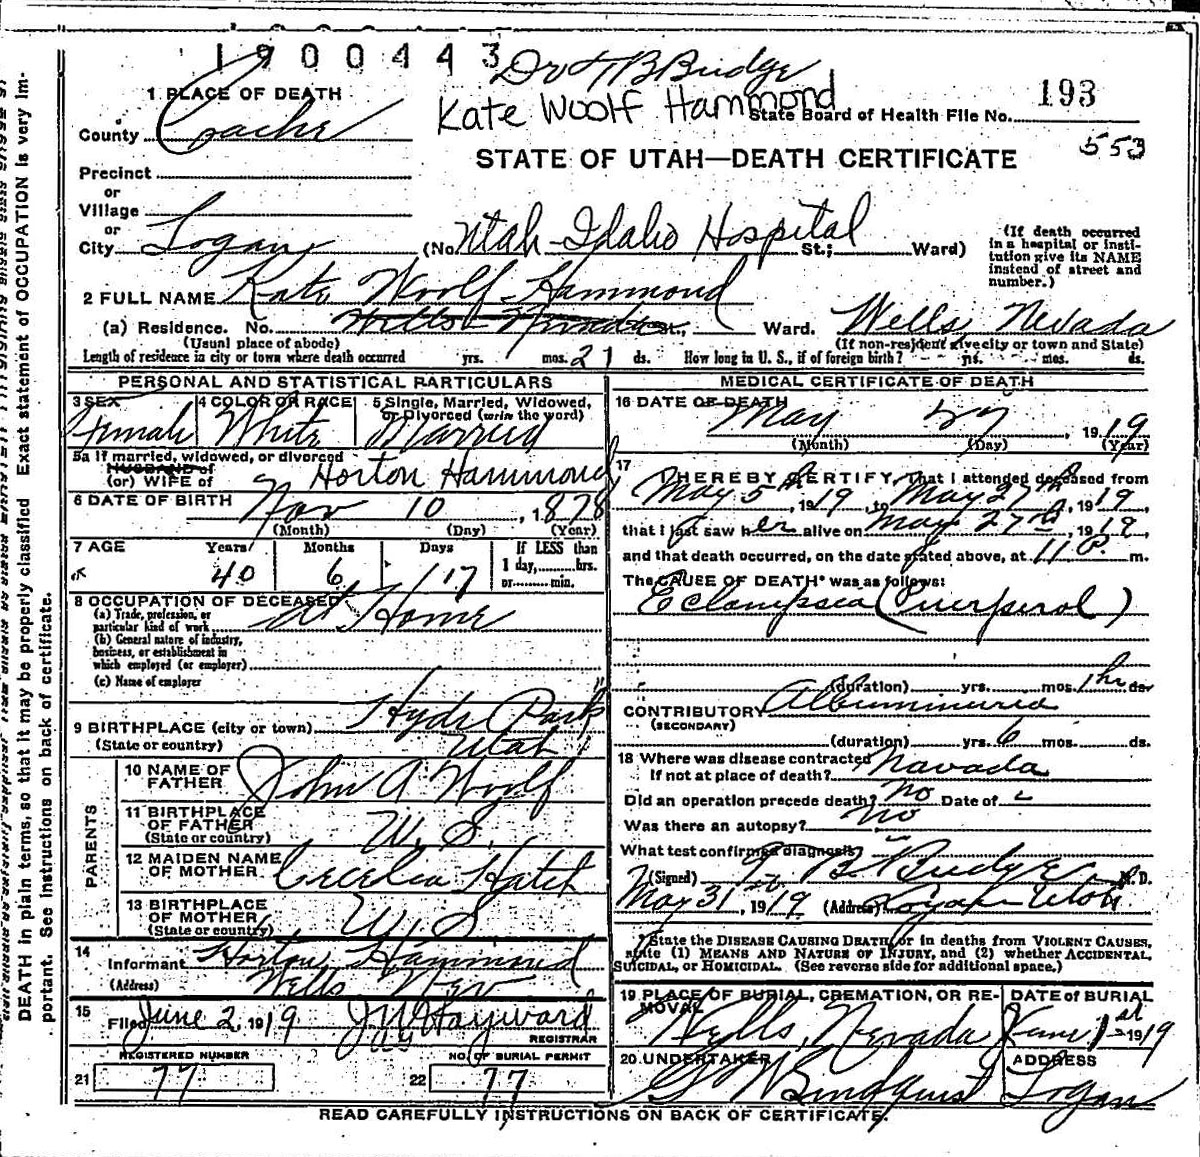 1900443
Dr T B Budge
Kate Woolf Hammond
193
State Board of Health File No.
553
STATE OF UTAH—DEATH CERTIFICATE
1 PLACE OF DEATH
County Cache
Precinct
or
Village
or
City Logan (No. Utah-Idaho Hospital St.; Ward)
(If death occurred in a hospital or institution give its NAME instead of street and number.)
2 FULL NAME Kate Woolf Hammond
(a) Residence. No. Wells Nevada St., Ward. Wells Nevada
(Usual place of abode) (If non-resident give city or town and State)
Length of residence in city or town where death occurred yrs. mos. 21 ds. How long in U. S., if of foreign birth? yrs. mos. ds.
PERSONAL AND STATISTICAL PARTICULARS
3 SEX Female
4 COLOR OR RACE White
5 Single, Married, Widowed, or Divorced (write the word) Married
5a If married, widowed, or divorced
HUSBAND of
(or) WIFE of Horton Hammond
6 DATE OF BIRTH Nov 10, 1878
(Month) (Day) (Year)
7 AGE Years 40 Months 6 Days 17 If LESS than 1 day, hrs. or min.
8 OCCUPATION OF DECEASED At Home
(a) Trade, profession, or particular kind of work
(b) General nature of industry, business, or establishment in which employed (or employer)
(c) Name of employer
9 BIRTHPLACE (city or town) Hyde Park
(State or country) Utah
PARENTS
10 NAME OF FATHER John A Woolf
11 BIRTHPLACE OF FATHER (State or country) U. S.
12 MAIDEN NAME OF MOTHER Cecelia Hatch
13 BIRTHPLACE OF MOTHER (State or country) U. S.
14 Informant Horton Hammond
(Address) Wells Nev
15 Filed June 2, 1919 J W Hayward
REGISTRAR
REGISTERED NUMBER
21 77
NO. OF BURIAL PERMIT
22 77
MEDICAL CERTIFICATE OF DEATH
16 DATE OF DEATH May 27, 1919
(Month) (Day) (Year)
17 I HEREBY CERTIFY, That I attended deceased from
May 5th, 1919, to May 27th, 1919
that I last saw her alive on May 27th, 1919
and that death occurred, on the date stated above, at 11 P. m.
The CAUSE OF DEATH* was as follows:
Eclampsia (Puerperal)
(duration) yrs. mos. 1 hr ds.
CONTRIBUTORY Albuminuria
(SECONDARY)
(duration) yrs. 6 mos. ds.
18 Where was disease contracted
If not at place of death? Navada
Did an operation precede death? No Date of
Was there an autopsy? No
What test confirmed diagnosis?
(Signed) T B Budge M. D.
May 31st, 1919 (Address) Logan Utah
State the DISEASE CAUSING DEATH, or in deaths from VIOLENT CAUSES, state (1) MEANS AND NATURE OF INJURY, and (2) whether ACCIDENTAL, SUICIDAL, or HOMICIDAL. (See reverse side for additional space.)
19 PLACE OF BURIAL, CREMATION, OR REMOVAL Wells, Nevada
DATE of BURIAL June 1st 1919
20 UNDERTAKER G W Lindquist
ADDRESS Logan
READ CAREFULLY INSTRUCTIONS ON BACK OF CERTIFICATE.
DEATH in plain terms, so that it may be properly classified Exact statement of OCCUPATION is very important. See instructions on back of certificate.